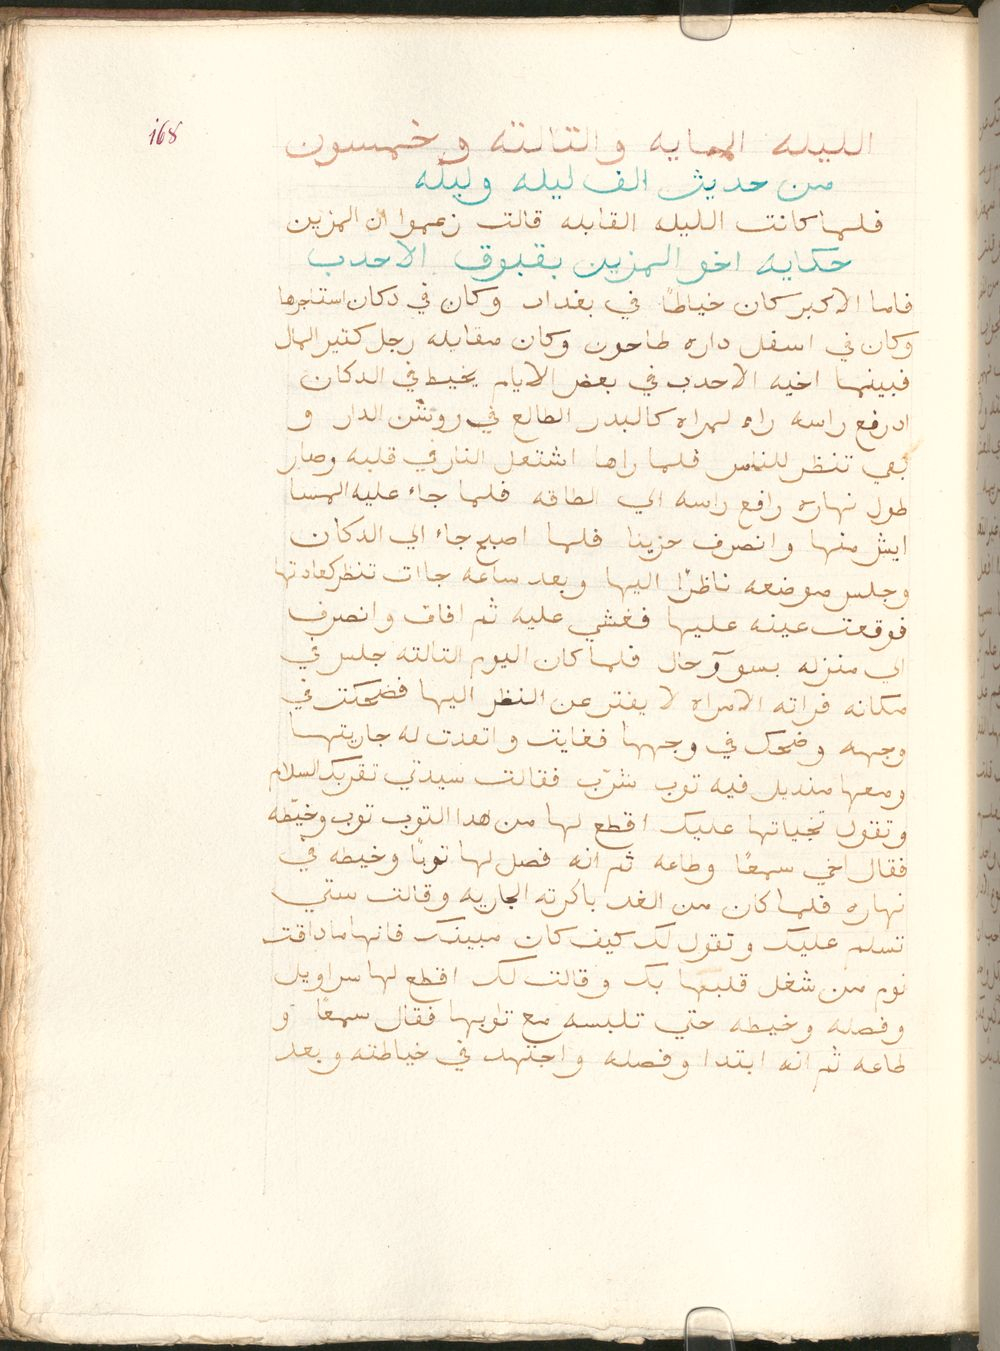 168
الليله المايه والتالته وخمسون
من حديث الف ليله وليله
فلما كانت الليله القابله قالت زعموا ان المزين
حكايه اخو المزين بقبوق الاحدب
فاما الاكبر كان خياطًا في بغداد وكان في دكان استاجرها
وكان في اسفل داره طاحون وكان مقابله رجل كتير المال
فبينما اخيه الاحدب في بعض الايام يخيط في الدكان
اد رفع راسه راء لمراه كالبدر الطالع في روشن الدار و
بقي تنظر للناس فلما راها اشتعل النار في قلبه وصار
طول نهاره رافع راسه الي الطاقه فلما جاء عليه المسا
ايش منها وانصرف حزينا فلما اصبح جاء الي الدكان
وجلس موضعه ناظرًا اليها وبعد ساعه جاات تنظر كعادتها
فوقعت عينه عليها فغشي عليه ثم افاق وانصرف
الي منزله بسو حال فلما كان اليوم التالته جلس في
مكانه فراته الامراه لا يفتر عن النظر اليها فضحكت في
وجهه وضحك في وجهها فغابت واتفدت له جاريتها
ومعها منديل فيه توب شرب فقالت سيدتي تقريك السلام
وتقول بحياتها عليك اقطع لها من هدا التوب توب وخيّطه
فقال اخي سمعًا وطاعه ثم انه فصل لها توبًا وخيطه في
نهاره فلما كان من الغد باكرته الجاريه وقالت ستي
تسلم عليك وتقول لك كيف كان مبيتك فانها ما داقت
نوم من شغل قلبها بك وقالت لك اقطع لها سراويل
وفصله وخيطه حتي تلبسه مع توبها فقال سمعًا و
طاعه ثم انه ابتدا وفصله واجتهد في خياطته وبعد